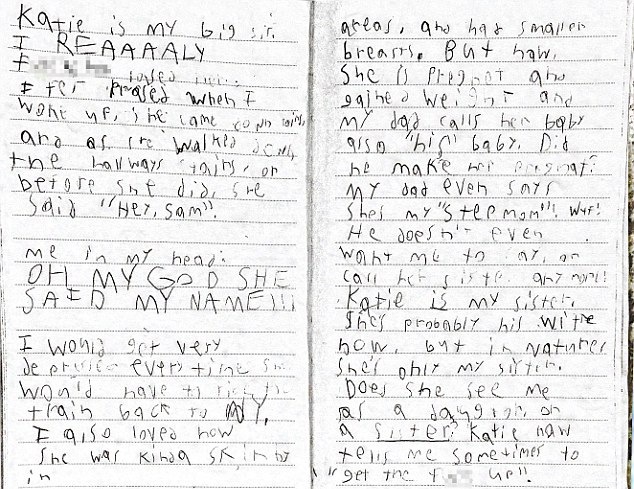 Katie is my big sis.
I REAAAALY
I loved
I felt when I
woke up, she came
and as she walked down
the hallways stairs, or
before she did, she
said "Hey, Sam".
me in my head:
OH MY GOD SHE
SAID MY NAME!!!
I would get very
every time she
would have to
train back to NY.
I also loved how
she was kinda skinny
in
areas, and had smaller
breasts. But now,
She is pregnot and
gained weight and
my dad calls her baby
also "his" baby. Did
he make her pregnat?
My dad even says
She's my "Stepmom"! Wtf!
He doesn't even
want me to say, or
call her sister any more!
Katie is my sister.
She's probably his wife
now, but in nature
She's only my sister.
Does she see me
as a daughter, or
a sister? Katie now
tells me sometimes to
"get the f up".